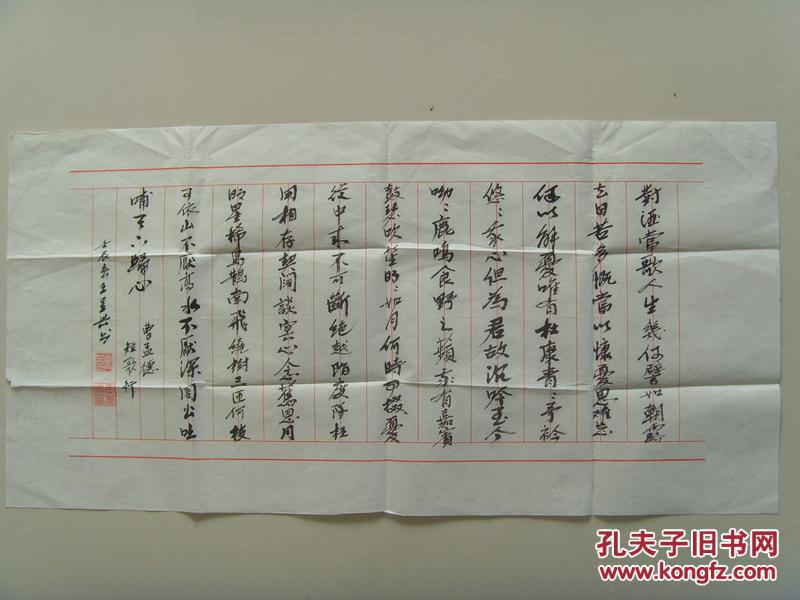 對酒當歌人生幾何譬如朝露
去日苦多慨當以慷憂思难忘
何以解憂唯有杜康青〻子衿
悠〻我心但為君故沉吟至今
呦〻鹿鳴食野之蘋我有嘉賓
鼓瑟吹笙明〻如月何時可掇憂
從中来不可斷絕越陌度阡枉
用相存契闊談宴心念舊恩月
明星稀烏鵲南飛繞樹三匝何枝
可依山不厭高水不厭深周公吐
哺天下歸心
曹孟德
短歌行
壬辰春王
孔夫子旧书网
www.kongfz.com